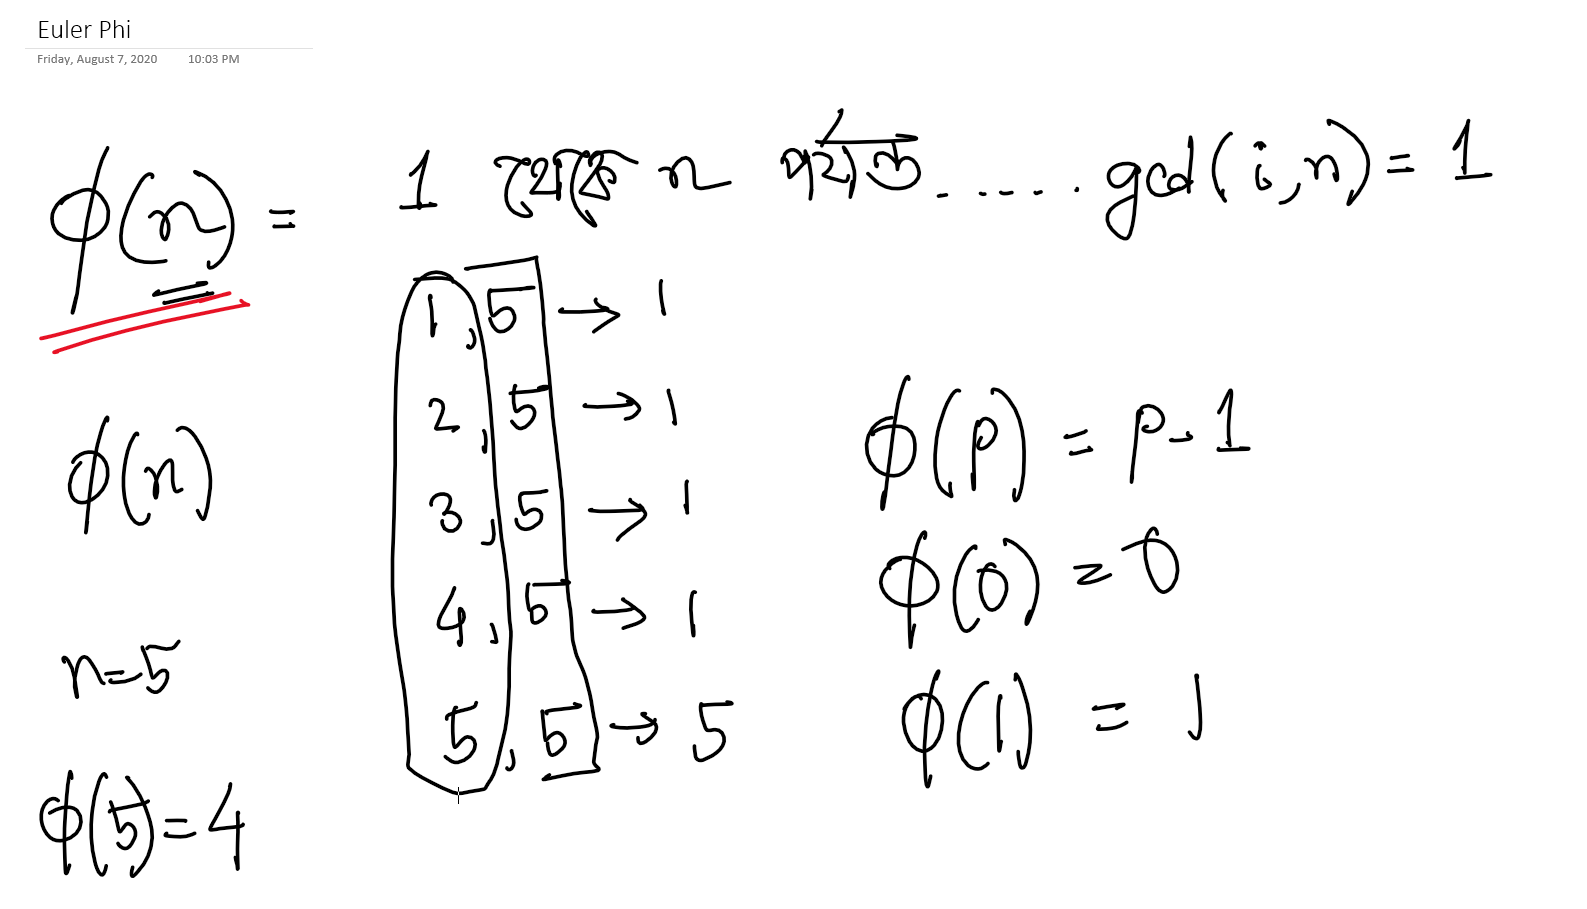 Euler Phi
Friday, August 7, 2020 10:03 PM
ϕ(n) = 1 n ..... gcd(i,n) = 1
1, 5 → 1
2, 5 → 1
3, 5 → 1
4, 5 → 1
5, 5 → 5
ϕ(n)
n=5
ϕ(5)=4
ϕ(p) = p-1
ϕ(0) = 0
ϕ(1) = 1